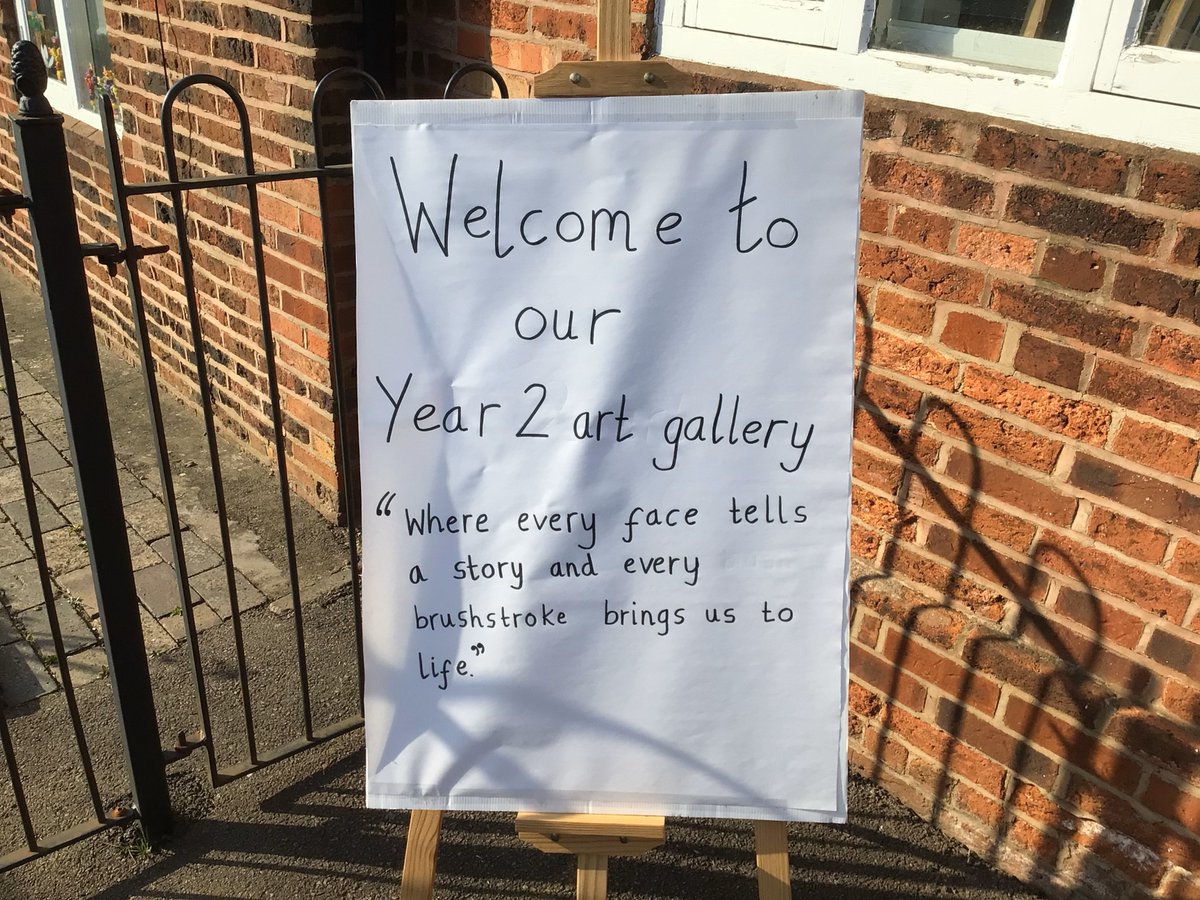 Welcome to
our
Year 2 art gallery
“Where every face tells
a story and every
brushstroke brings us to
life.”